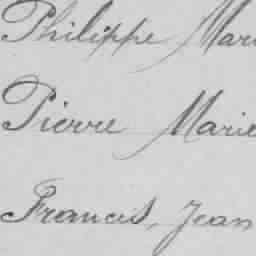 Philippe Mari
Pierre Marie
Francis, Jean